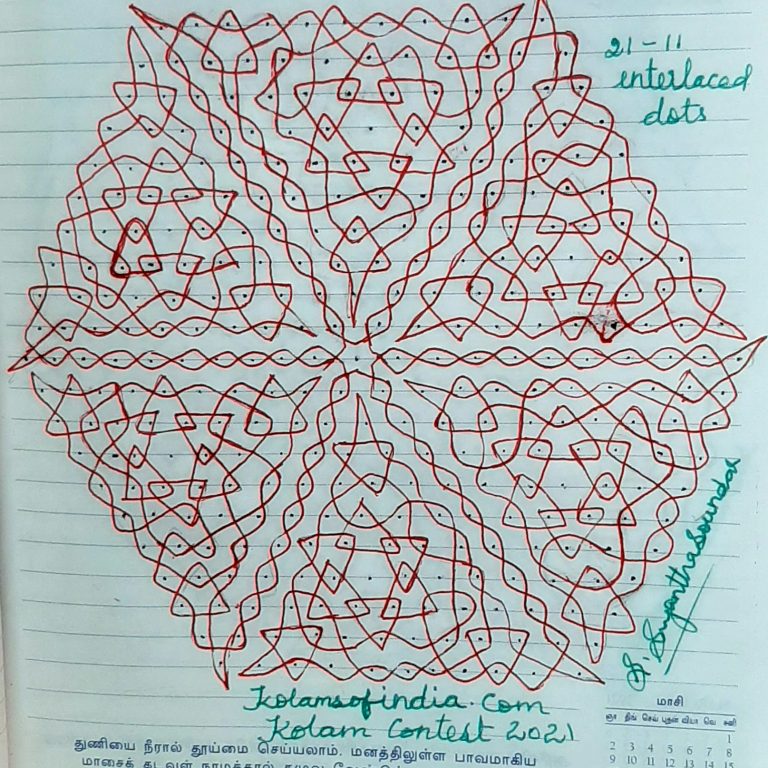 21-11
interlaced
dots
Kolamsofindia.com
Kolam Contest 2021
மாசி
ஞா திங் செவ் புதன் வியா வெ சனி
1
2 3 4 5 6 7 8
9 10 11 12 13 14 15
துணியை நீரால் தூய்மை செய்யலாம். மனத்திலுள்ள பாவமாகிய